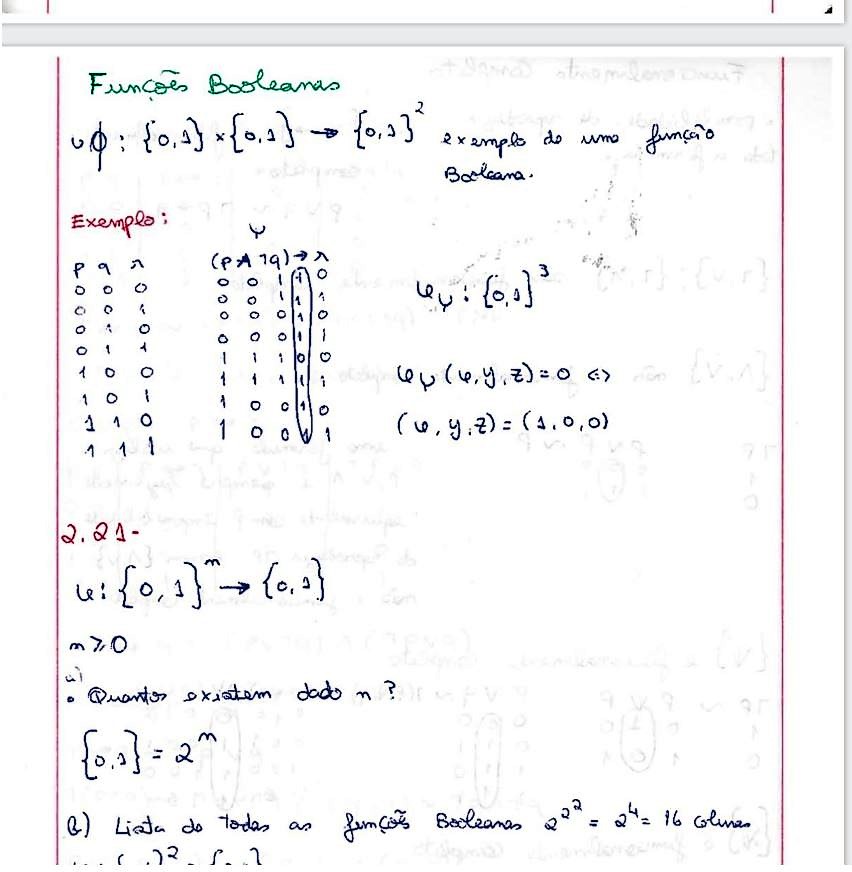 Funções Booleanas
φ : {0,1} × {0,1} → {0,1}² exemplo de uma função
Booleana.
Exemplo:
ψ
p q r (p ∧ ¬q) → r
0 0 0 0 0 1 1 0
0 0 1 0 0 1 1 1
0 1 0 0 0 0 1 0
0 1 1 0 0 0 1 1
1 0 0 1 1 1 0 0
1 0 1 1 1 1 1 1
1 1 0 1 0 0 1 0
1 1 1 1 0 0 1 1
φψ : {0,1}³
φψ (φ, y, z) = 0 <=>
(φ, y, z) = (1,0,0)
2.21-
φ: {0,1}ⁿ → {0,1}
n ≥ 0
a)
• Quantos existem dado n?
{0,1} = 2ⁿ
b) Lista de todas as funções Booleanas 2^2^2 = 2^4 = 16 colunas